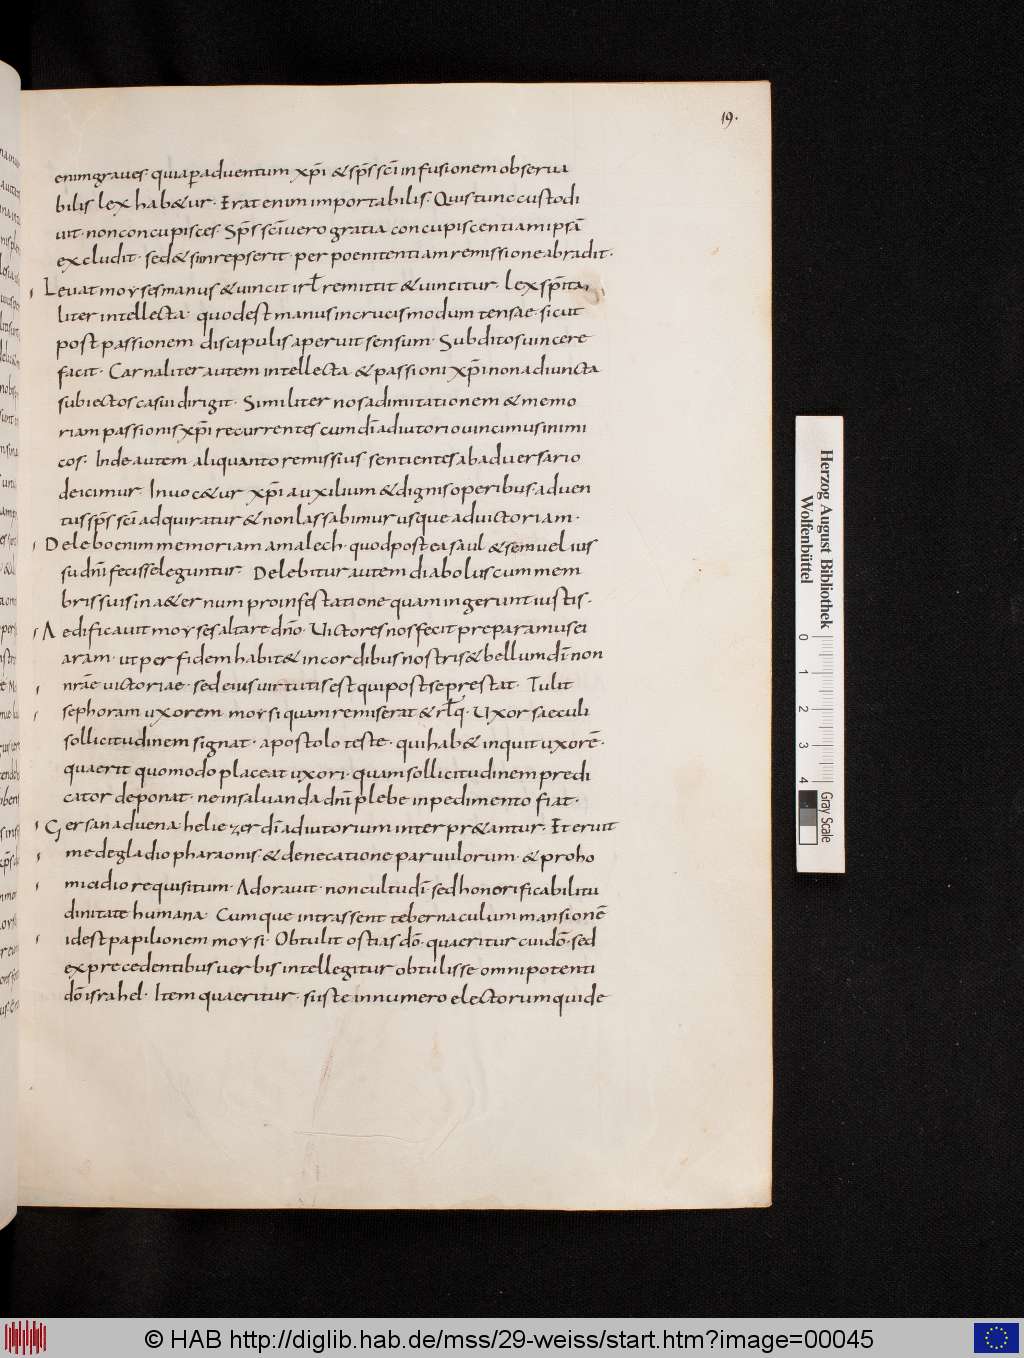 19.
enim graues. quia p̄ aduentum xp̄i & sp̄s sc̄i infusionem obserua
bilis lex hab&ur. Erat enim importabilis. Quis tunc custodi
uit. non concupisces. Sp̄s sc̄i uero gratia concupiscentiam ipsā
excludit. sed & si inrepserit. per poenitentiam remissione abradit.
Leuat moyses manus & uincit isrl̄ remittit & uincitur. Lex sp̄ita
liter intellecta. quod est manus in crucis modum tensae. sicut
post passionem discipulis aperuit sensum. Subditos uincere
facit. Carnaliter autem intellecta & passioni xp̄i non adiuncta
subiectos casui dirigit. Similiter nos ad imitationem & memo
riam passionis xp̄i recurrentes cum dī adiutorio uincimus inimi
cos. Inde autem aliquanto remissius sentientes ab aduersario
deicimur. Inuoc&ur xp̄i auxilium & dignis operibus. aduen
tus sp̄s sc̄i adquiratur & non lassabimur usque ad uictoriam.
Delebo enim memoriam amalech. quod post ea saul & semuel ius
su dn̄i fecisse leguntur. Delebitur autem diabolus cum mem
bris suis in a&ernum pro infestatione quam ingerunt iustis.
Aedificauit moyses altare dn̄o. Uictores nos fecit preparamus ei
aram. ut per fidem habit& in cordibus nostris & bellum dī non
nrāe uictoriae. sed eius uirtutis est qui post se prestat. Tulit
sephoram uxorem moysi quam remiserat & rl̄q. Uxor saeculi
sollicitudinem signat. apostolo teste. qui hab& inquit uxorē.
quaerit quomodo placeat uxori. quam sollicitudinem predi
cator deponat. ne in saluanda dn̄i plebe inpedimento fiat.
Gersan aduena heliezer dī adiutorium interpr&antur. Et eruit
me de gladio pharaonis. & de necatione paruulorum. & pro ho
micidio requisitum. Adorauit. non cultu dī sed honorificabilitu
dinitate humana. Cumque intrassent tebernaculum mansionē
id est papilionem moysi. Obtulit ostias dō. quaeritur cui dō. sed
ex precedentibus uerbis intellegitur obtulisse omnipotenti
dō israhel. Item quaeritur. si iste in numero electorum quide
Herzog August Bibliothek
Wolfenbüttel
0 1 2 3 4
Gray Scale
© HAB http://diglib.hab.de/mss/29-weiss/start.htm?image=00045